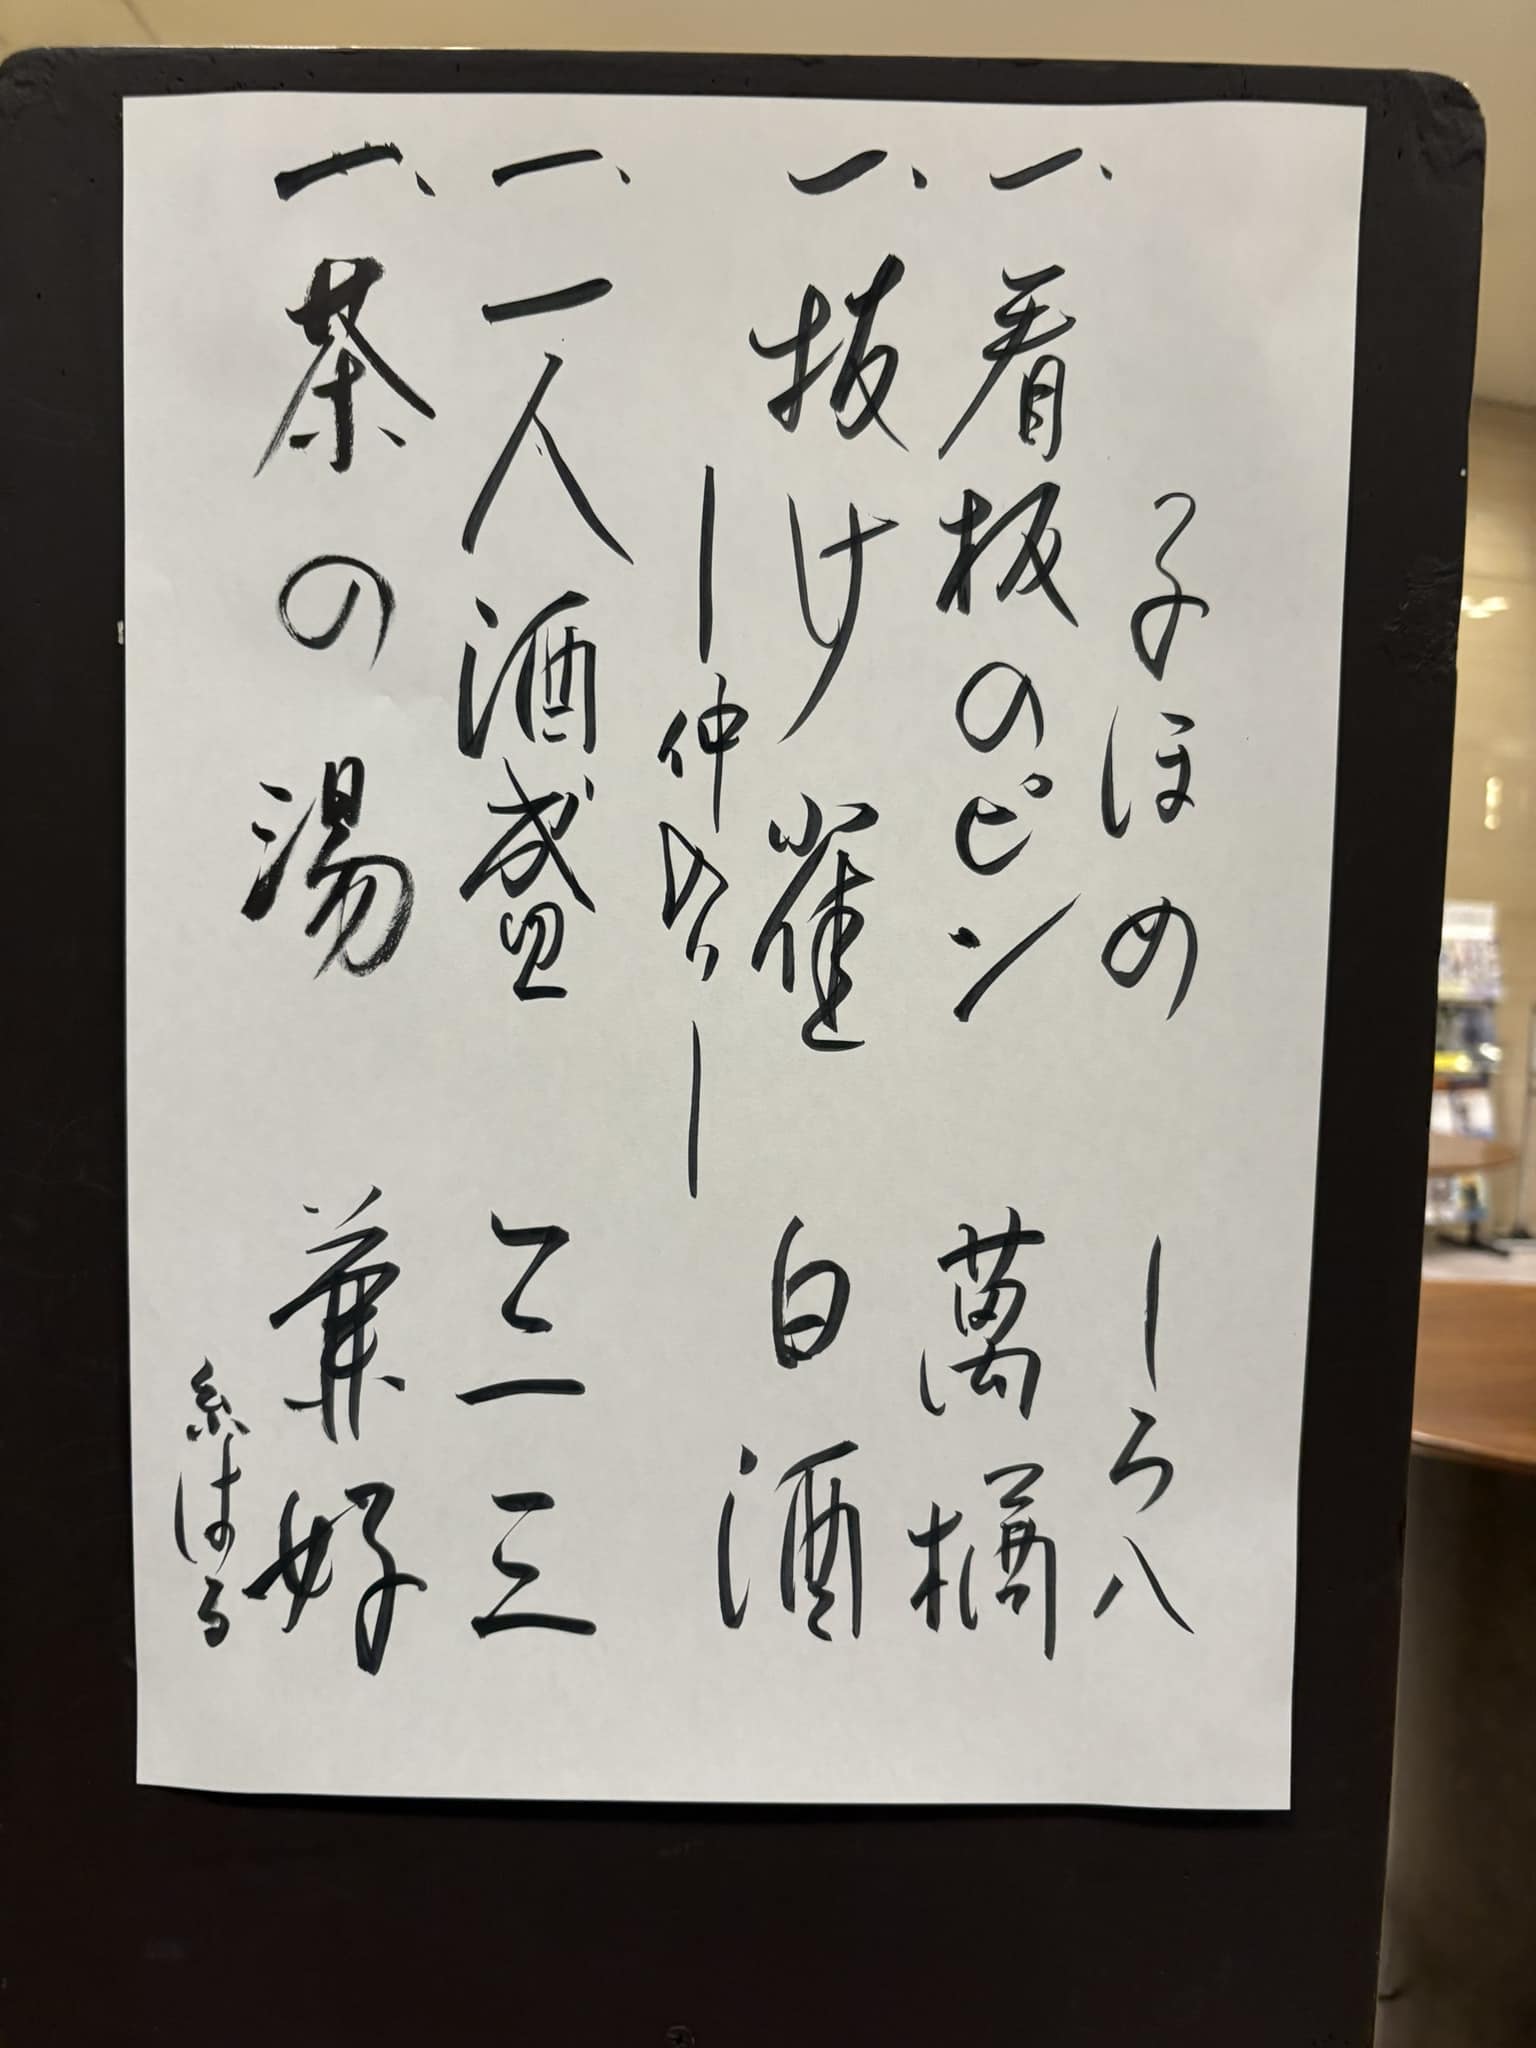 子ほめ ーろ八
一、看板のピン 萬橘
一、抜け雀 白酒
ー仲入ー
一、一人酒盛 三三
一、茶の湯 兼好
はる